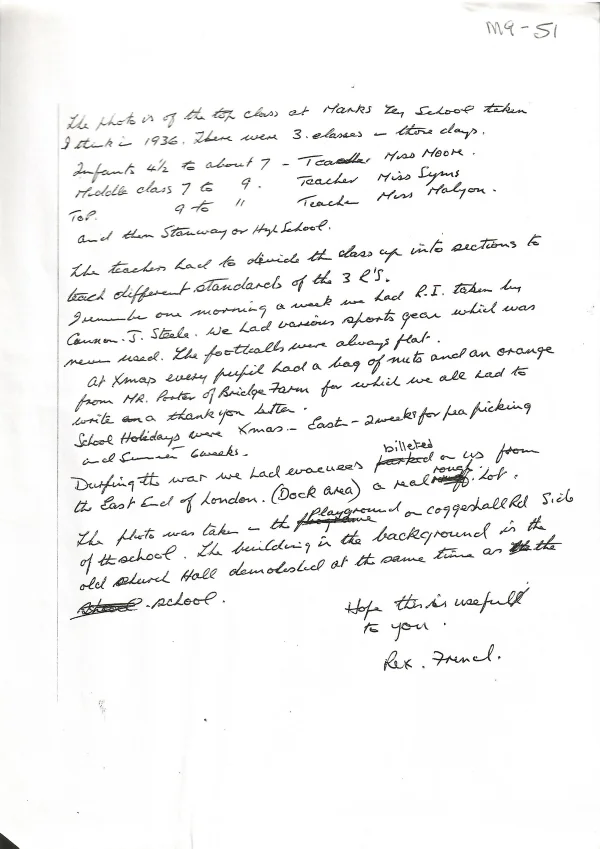 M9-51
The photo is of the top class at Marks Tey School taken
I think in 1936. There were 3 classes in those days.
Infants 4½ to about 7 - Teacher Miss Moore.
Middle class 7 to 9. Teacher Miss Syms
Top. 9 to 11 Teacher Miss Malyon.
and then Stanway or High School.
The teachers had to divide the class up into sections to
teach different standards of the 3 R'S.
I remember one morning a week we had R.I. taken by
Cannon. J. Steele. We had various sports gear which was
never used. The footballs were always flat.
At Xmas every pupil had a bag of nuts and an orange
from MR. Porter of Bridge Farm for which we all had to
write a thankyou letter.
School Holidays were Xmas - Easter - 2 weeks for pea picking
and Summer 6 weeks.
During the war we had evacuees billeted on us from
the East End of London. (Dock Area) a real rough lot.
The photo was taken in the Playground on Coggeshall Rd Side
of the school. The building in the background is the
old church Hall demolished at the same time as the
school.
Hope this is usefull
to you.
Rex. French.